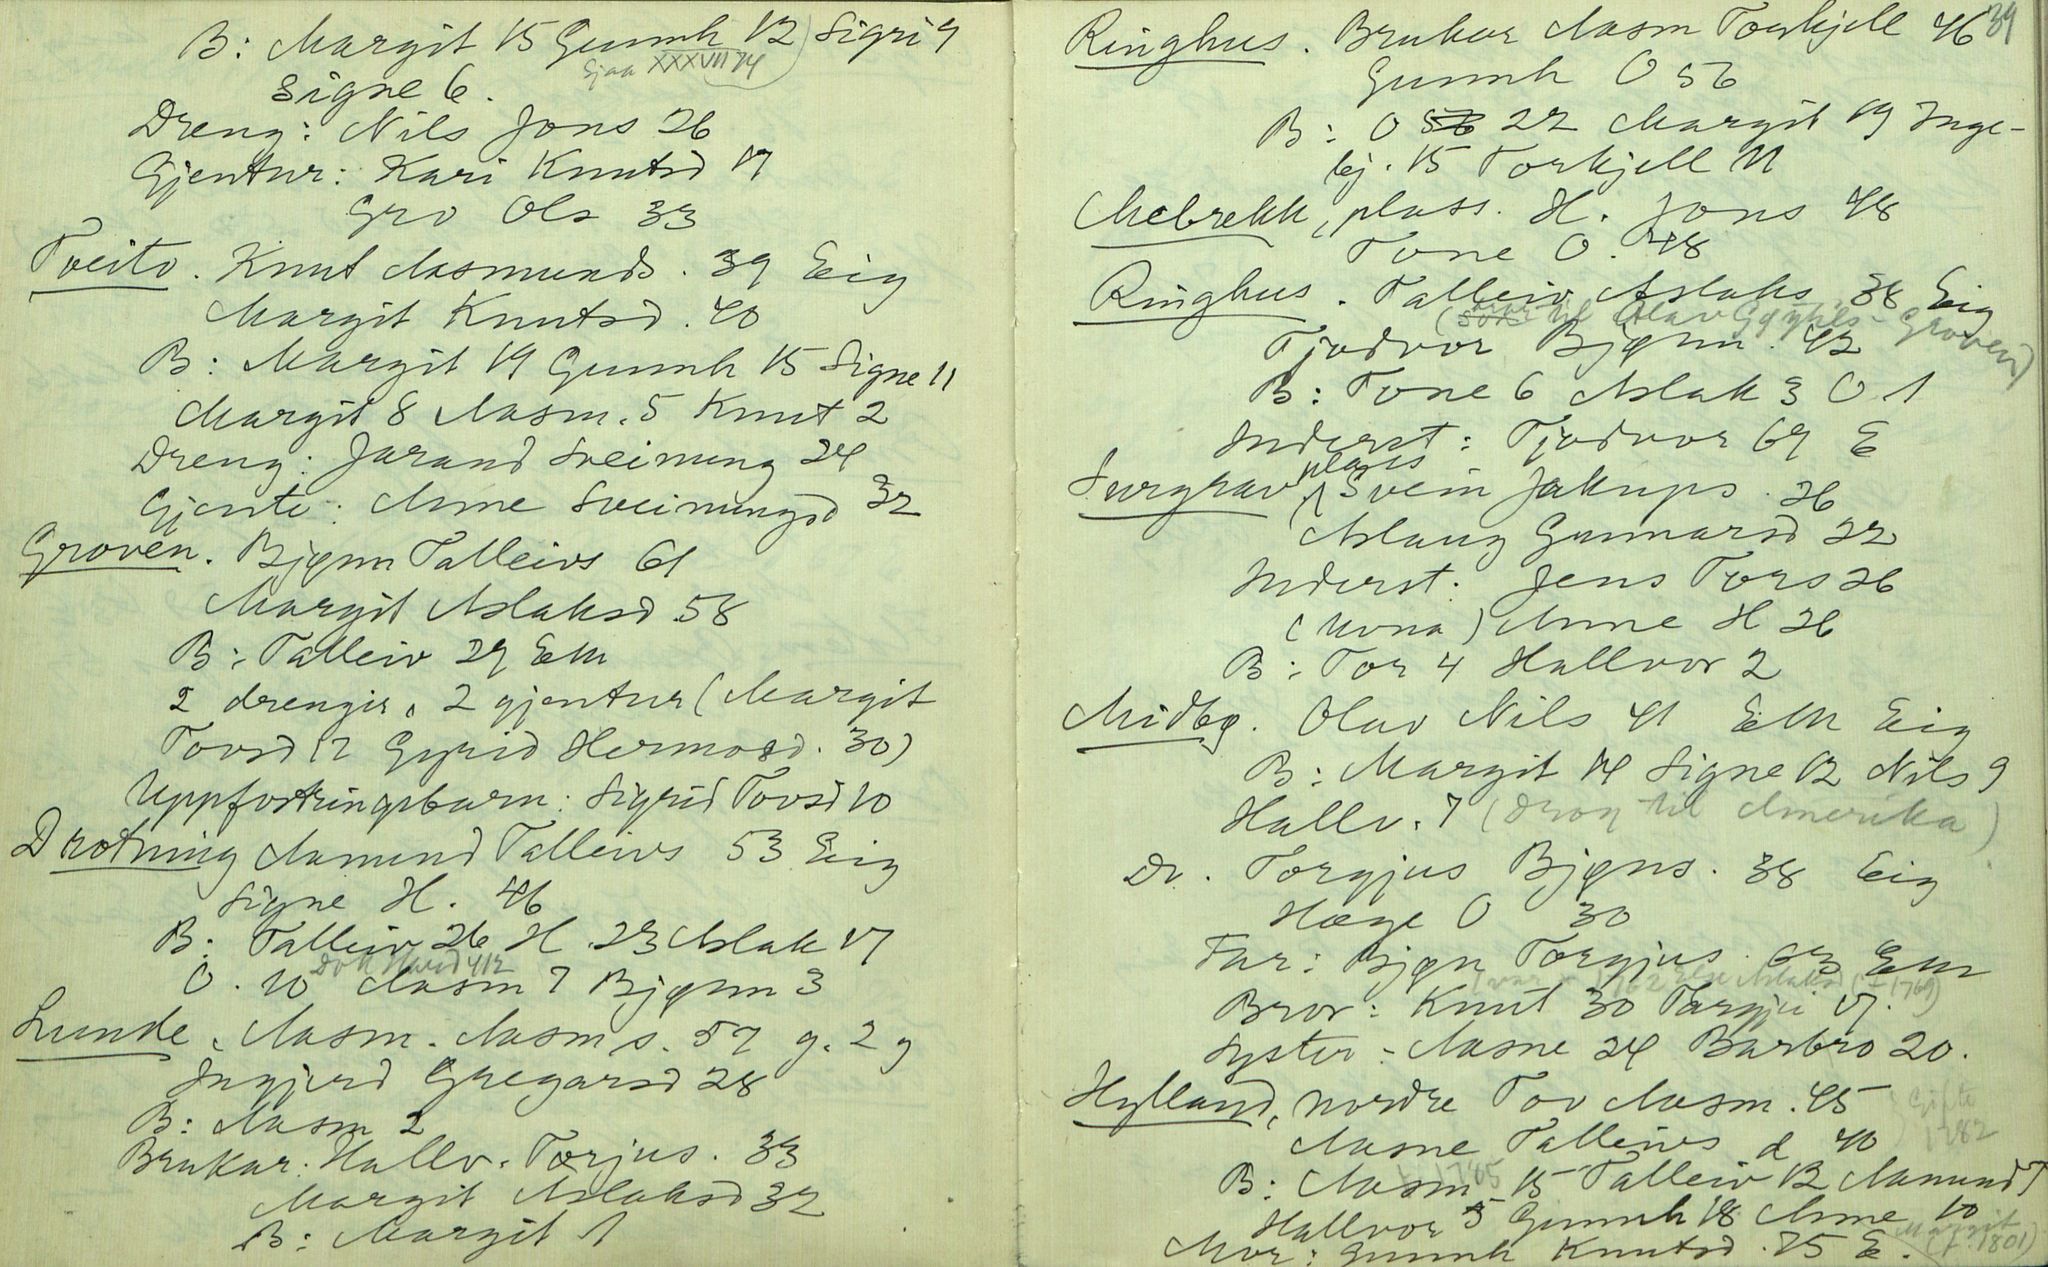 B: Margit 15 Gunnh 12) Sigri 9
Ejaa XXXVII 74
Signe 6.
Dreng: Nils Jons 26
Gjentur: Kari Knutsd 17
Gro Ols 33
Tveito. Knut Aasmunds. 39 Eig
Margit Knutsd. 40
B: Margit 19 Gunnh 15 Signe 11
Margit 8 Aasm. 5 Knut 2
Dreng: Jarand Sveinung 24
Gjente: Anne Sveinungsd 32
Groven. Bjønn Talleivs 61
Margit Aslaksd 58
B: Talleiv 29 Em
2 drengir, 2 gjentur (Margit
Tovsd 12 Gyrid Hermosd. 30)
Uppfostringsbarn: Sigrid Tovsd 10
Drotning Aamund Talleivs 53 Eig
Signe H. 46
B: Talleiv 26 H. 23 Aslak 17
O. 10 Aasm 7 Bjønn 3
Lunde. Aasm. Aasm s. 57 g. 2 g
Ingjerd Gregarsd 28
B: Aasm 2
Brukar: Hallv. Torjus. 33
Margit Aslaksd 32
B: Margit 1
39
Ringhus. Brukar Aasm Torkjell 46
Gunnh O 56
B: O 56 22 Margit 19 Inge-
bj. 15 Torkjell 11
Mebrekk, plass. H. Jons 48
Tone O. 48
Ringhus. Talleiv Aslaks 38 Eig
(son mor til Olav Gøyhils- Groven)
Tjodvor Bjønn. 42
B: Tone 6 Aslak 3 O 1
Inderst: Tjodvor 69 E
Surgrav plass Svein Jakups. 26
Aslaug Gunnarsd 22
Inderst: Jens Tors 26
(Kona) Anne H 26
B: Tor 4 Hallvor 2
Midbø. Olav Nils 41 Em Eig
B: Margit 14 Signe 12 Nils 9
Hallv. 7 (drog til Amerika)
Dr. Torgjus Bjøns. 38 Eig
Hæge O 30
Far: Bjøn Torgjus 63 Em
Aslaksd († 1769)
Bror: Knut 30 Targjei 17.
Syster: Aasne 24 Barbro 20.
Hylland, nordre Tov Aasm. 45
Gifte 1782
Aasne Talleivs d 40
B: Aasm 15 Talleiv 12 Aamund 7
Hallvor 5 Gunnh 18 Anne 10
Margit († 1801)
Mor: Gunnh Knutsd. 75 E.